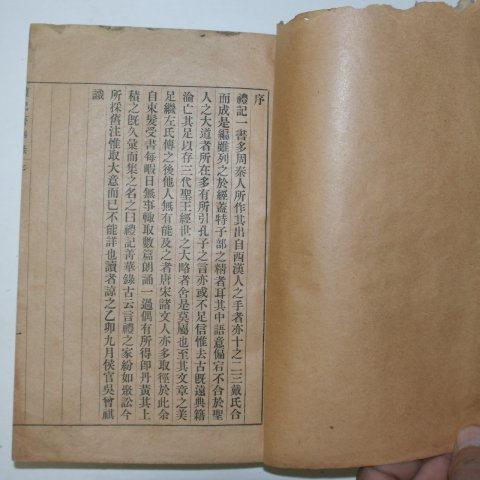 序
禮記一書多周秦人所作其出自西漢人之手者亦十之二三戴氏合
而成是編雖列之於經蓋特子部之精者耳其中語意偏宕不合於聖
人之大道者所在多有所引孔子之言亦或不足信惟去古旣遠典籍
淪亡其足以存三代聖王經世之大略者舍是莫屬也至其文章之美
足繼左氏傳之後他人無有能及之者唐宋諸文人亦多取徑於此余
自束髮受書每暇日無事輙取數篇朗誦一過偶有所得卽丹黃其上
積之旣久彙而集之名曰禮記菁華錄古云言禮之家紛如聚訟今
所採舊注惟取大意而已不能詳也讀者諒之乙卯九月侯官吳曾祺
識